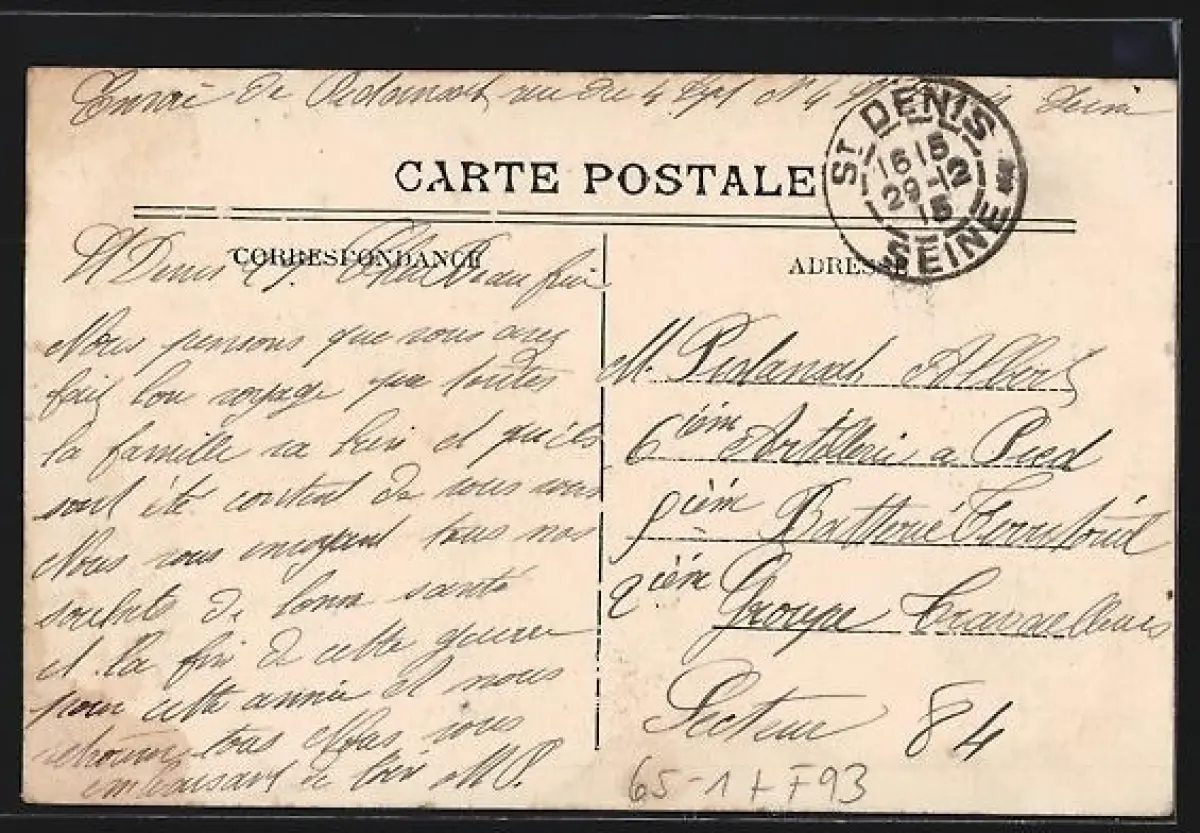 Envoi de Pedanault rue du 4 Sept N 4 St Denis Seine
CARTE POSTALE
ST DENIS
16 15
29 -12
15
SEINE
CORRESPONDANCE
ADRESSE
St Denis 29. Cher Beau frère
Nous pensons que vous avez
fait bon voyage que toutes
la famille va bien et qu'ils
sont été contant de vous avoir
Nous vous envoyant tous nos
souhits de bonne santé
et la fin de cette guerre
pour cette année et nous
tous vous
embrassant de loin M P.
M. Albert
6 ièm Artillerie a Pied
ièm Batterie
2 ièm Groupe
Secteur 84
65-1 + F93